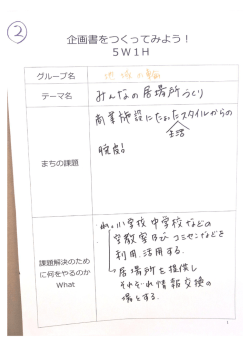 ②
企画書をつくってみよう！
5W1H
グループ名
地域の輪
テーマ名
みんなの居場所づくり
まちの課題
商業施設にたよったスタイルからの
生活
脱皮!
課題解決のため
に何をやるのか
What
小学校中学校などの
空教室及びコミセンなどを
利用.活用する.
居場所を提供し
それぞれ情報交換の
場とする.
1